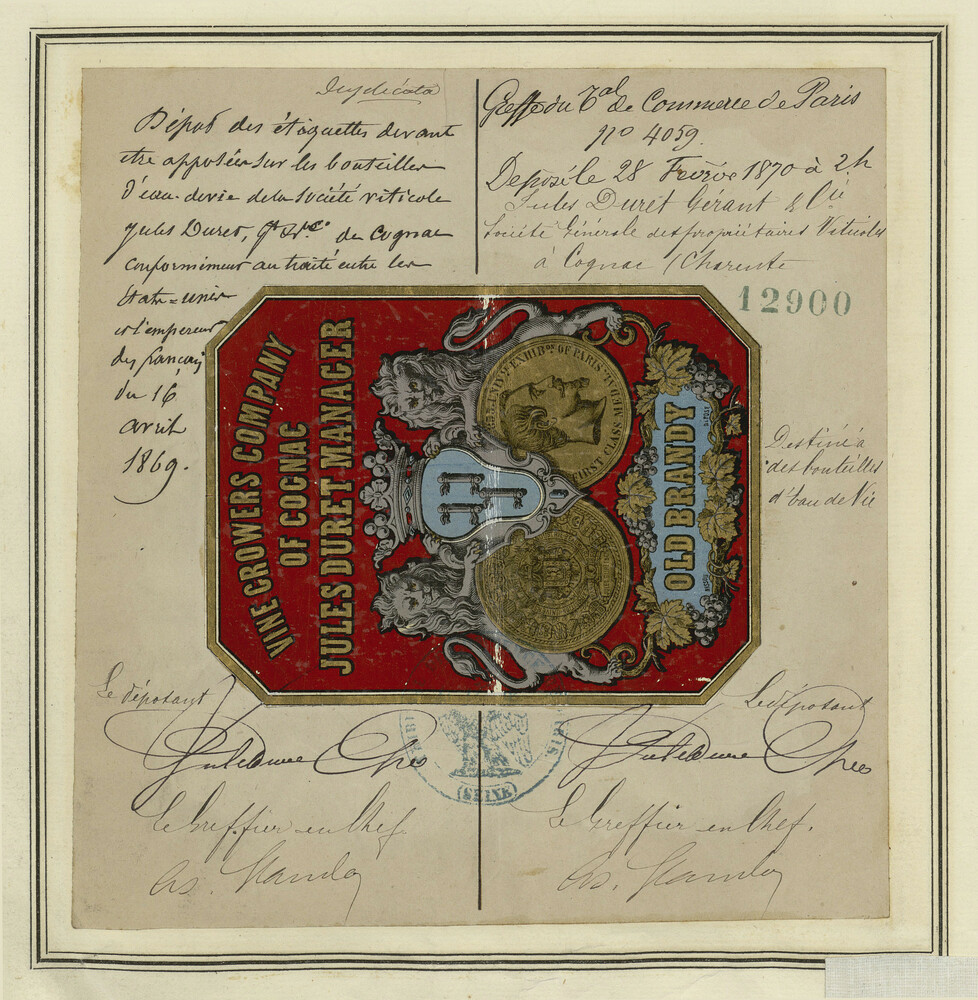 Duplicata
Dépot des étiquettes devant
etre apposées sur les bouteilles
d'eau-de-vie de la société viticole
Jules Duret, Gt & Cie de Cognac
conformément au traité entre les
États-unis
et l'empereur
des français
du 16
avril
1869.
Greffe du Tal de Commerce de Paris
no 4059.
Deposé le 28 Février 1870 à 2h
Jules Duret Gérant & Cie
Société Générale des propriétaires Viticoles
à Cognac (Charente
12900
Destiné à
des bouteilles
d'Eau de Vie
VINE GROWERS COMPANY
OF COGNAC
JULES DURET MANAGER
EXHIBon OF PARIS
FIRST CLASS MEDAL
OLD BRANDY
Le déposant
Le Greffier en Chef
(SEINE)
Le déposant
Le Greffier en Chef.